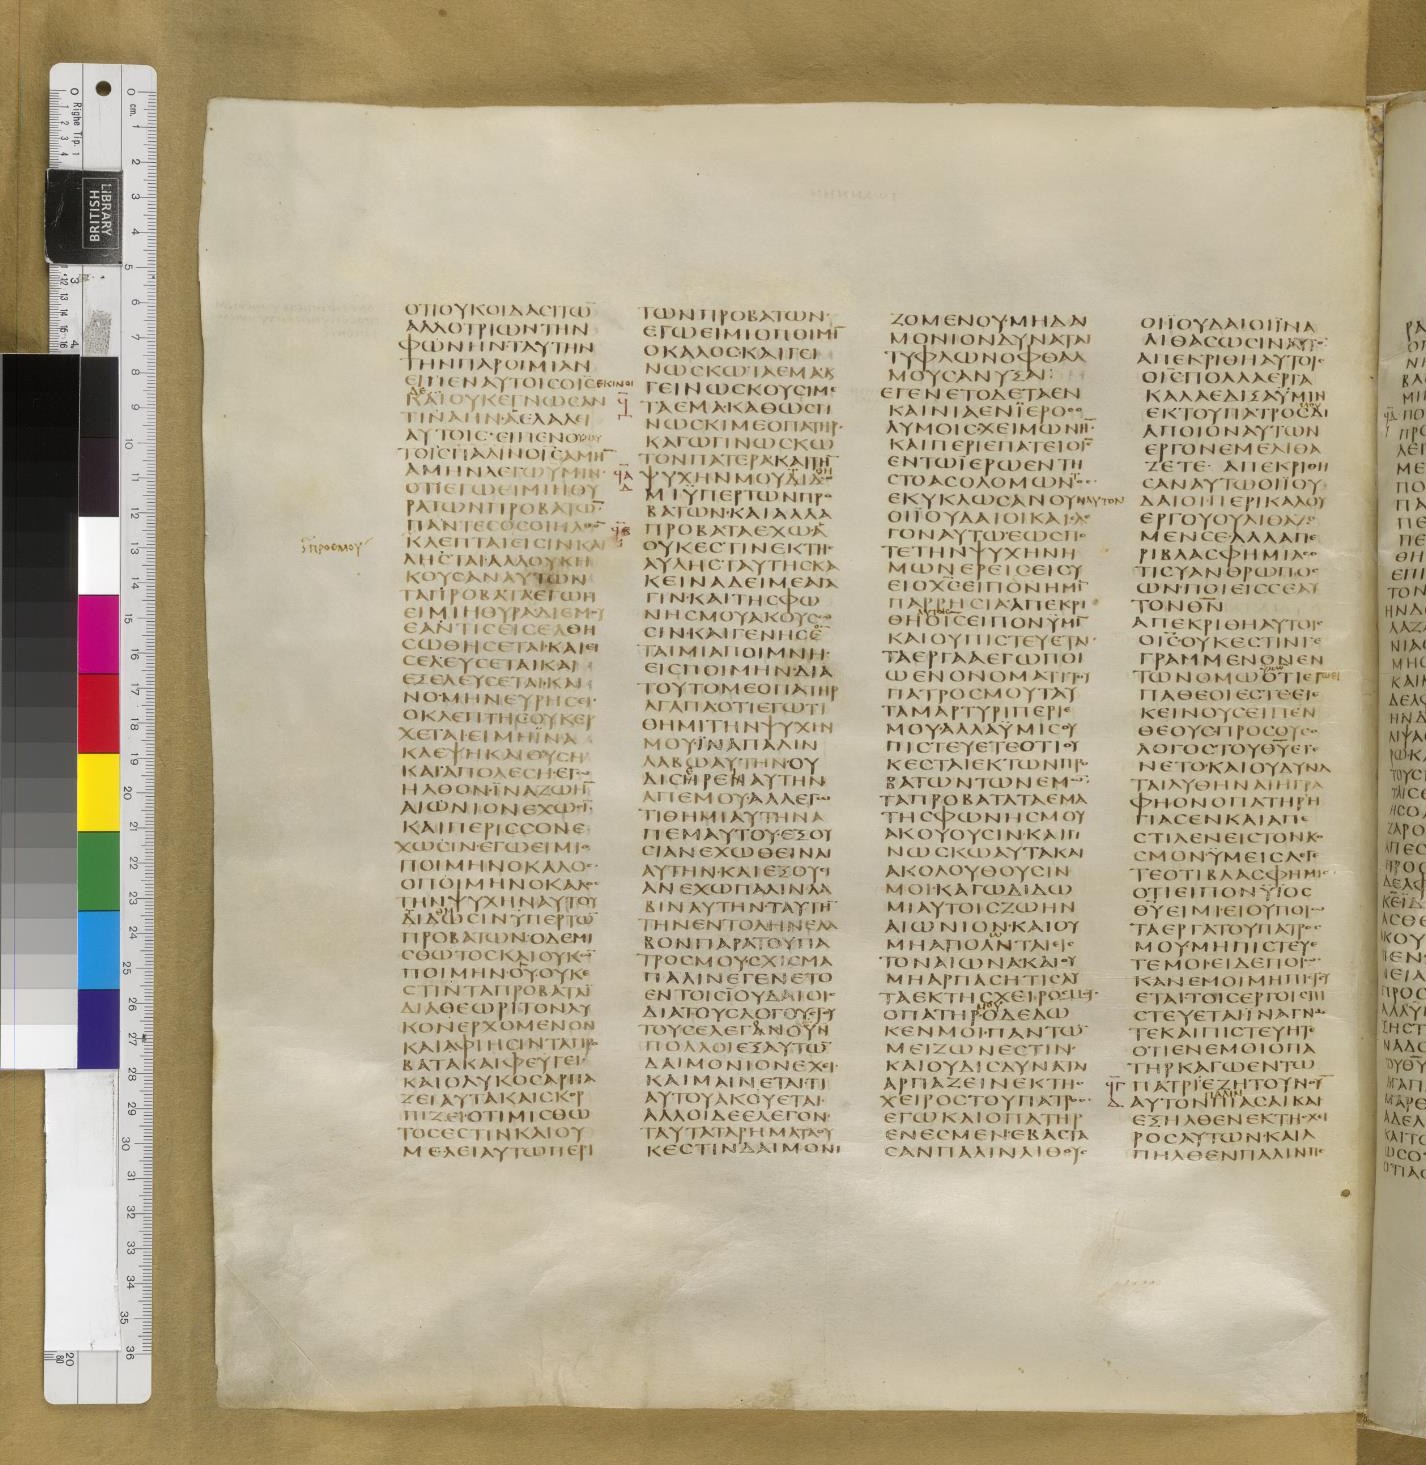 ΟΤΙΟΥΚΟΙΔΑϹΙΤΩ̅
ΑΛΛΟΤΡΙΩΝΤΗΝ
ΦΩΝΗΝ·ΤΑΥΤΗΝ
ΤΗΝΠΑΡΟΙΜΙΑΝ
ΕΙΠΕΝΑΥΤΟΙϹΟΙ̅Ϲ̅ΕΚΙΝΟΙ
ΔΕ
ΚΑΙΟΥΚΕΓΝΩϹΑΝ
ΤΙΝΑΗΝ·ΑΕΛΑΛΕΙ
ΑΥΤΟΙϹ·ΕΙΠΕΝΟΥΟΥ
ΤΟΙϹΠΑΛΙΝΟΙ̅Ϲ̅ΑΜΗ̅
ΑΜΗΝΛΕΓΩΥΜΙΝ·
ΟΤΙΕΓΩΕΙΜΙΗΘΥ
ΡΑΤΩΝΠΡΟΒΑΤΩ̅·
ΠΑΝΤΕϹΟϹΟΙΗΛΘΟ̅
ΠΡΟΕΜΟΥ
ΚΛΕΠΤΑΙΕΙϹΙΝΚΑΙ
ΛΗϹΤΑΙ·ΑΛΛΟΥΚΗ
ΚΟΥϹΑΝΑΥΤΩΝ
ΤΑΠΡΟΒΑΤΑΕΓΩΗ
ΕΙΜΙΗΘΥΡΑ·ΔΙΕΜΟΥ
ΕΑΝΤΙϹΕΙϹΕΛΘΗ
ϹΩΘΗϹΕΤΑΙ·ΚΑΙΕΙ
ϹΕΛΕΥϹΕΤΑΙΚΑΙ
ΕΞΕΛΕΥϹΕΤΑΙ·ΚΑΙ
ΝΟΜΗΝΕΥΡΗϹΕΙ·
ΟΚΛΕΠΤΗϹΟΥΚΕΡ
ΧΕΤΑΙ·ΕΙΜΗΪΝΑ
ΚΛΕΨΗΚΑΙΘΥϹΗ
ΚΑΙΑΠΟΛΕϹΗ·ΕΓΩ
ΗΛΘΟΝ·ΪΝΑΖΩΗ̅
ΑΙΩΝΙΟΝΕΧΩϹΙ̅
ΚΑΙΠΕΡΙϹϹΟΝΕ
ΧΩϹΙΝ·ΕΓΩΕΙΜΙΟ
ΠΟΙΜΗΝΟΚΑΛΟϹ·
ΟΠΟΙΜΗΝΟΚΑΛΟϹ
ΤΗΝΨΥΧΗΝΑΥΤΟΥ
ΔΙΔΩϹΙΝΫΠΕΡΤΩ̅
ΠΡΟΒΑΤΩΝ·ΟΔΕΜΙ
ϹΘΩΤΟϹΚΑΙΟΥΚΩ̅
ΠΟΙΜΗΝΟΥΟΥΚΕ
ϹΤΙΝΤΑΠΡΟΒΑΤΑΪ
ΔΙΑΘΕΩΡΙΤΟΝΛΥ
ΚΟΝΕΡΧΟΜΕΝΟΝ
ΚΑΙΑΦΙΗϹΙΝΤΑΠΡΟ
ΒΑΤΑΚΑΙΦΕΥΓΕΙ·
ΚΑΙΟΛΥΚΟϹΑΡΠΑ
ΖΕΙΑΥΤΑΚΑΙϹΚΟΡ
ΠΙΖΕΙ·ΟΤΙΜΙϹΘΩ
ΤΟϹΕϹΤΙΝΚΑΙΟΥ
ΜΕΛΕΙΑΥΤΩΠΕΡΙ
ΤΩΝΠΡΟΒΑΤΩΝ·
ΕΓΩΕΙΜΙΟΠΟΙΜΗ̅
ΟΚΑΛΟϹ·ΚΑΙΓΕΙ
ΝΩϹΚΩΤΑΕΜΑΚ
ΓΕΙΝΩϹΚΟΥϹΙΜΕ
ΤΑΕΜΑ·ΚΑΘΩϹΓΙ
ΝΩϹΚΙΜΕΟΠΑΤΗΡ·
ΚΑΓΩΓΙΝΩϹΚΩ
ΤΟΝΠΑΤΕΡΑ·ΚΑΙΤΗ̅
ΨΥΧΗΝΜΟΥΔΙΔΩ
ΜΙΫΠΕΡΤΩΝΠΡΟ
ΒΑΤΩΝ·ΚΑΙΑΛΛΑ
ΠΡΟΒΑΤΑΕΧΩΑ
ΟΥΚΕϹΤΙΝΕΚΤΗϹ
ΑΥΛΗϹΤΑΥΤΗϹΚΑ
ΚΕΙΝΑΔΕΙΜΕΑΓΑ
ΓΙΝ·ΚΑΙΤΗϹΦΩ
ΝΗϹΜΟΥΑΚΟΥϹΩ
ϹΙΝ·ΚΑΙΓΕΝΗϹΕ
ΤΑΙΜΙΑΠΟΙΜΝΗ·
ΕΙϹΠΟΙΜΗΝ·ΔΙΑ
ΤΟΥΤΟΜΕΟΠΑΤΗΡ
ΑΓΑΠΑΟΤΙΕΓΩΤΙ
ΘΗΜΙΤΗΝΨΥΧΗΝ
ΜΟΥ·ΪΝΑΠΑΛΙΝ
ΛΑΒΩΑΥΤΗΝΟΥ
ΔΙϹΗΡΕΝΑΥΤΗΝ
ΑΠΕΜΟΥ·ΑΛΛΕΓΩ
ΤΙΘΗΜΙΑΥΤΗΝΑ
ΠΕΜΑΥΤΟΥ·ΕΞΟΥ
ϹΙΑΝΕΧΩΘΕΙΝΑΙ
ΑΥΤΗΝ·ΚΑΙΕΞΟΥϹΙ
ΑΝΕΧΩΠΑΛΙΝΛΑ
ΒΙΝΑΥΤΗΝ·ΤΑΥΤΗ̅
ΤΗΝΕΝΤΟΛΗΝΕΛΑ
ΒΟΝΠΑΡΑΤΟΥΠΑ
ΤΡΟϹΜΟΥ·ϹΧΙϹΜΑ
ΠΑΛΙΝΕΓΕΝΕΤΟ
ΕΝΤΟΙϹΙΟΥΔΑΙΟΙϹ
ΔΙΑΤΟΥϹΛΟΓΟΥϹΤΟΥ
ΤΟΥϹΕΛΕΓΑΝΟΥΝ
ΠΟΛΛΟΙΕΞΑΥΤΩ̅
ΔΑΙΜΟΝΙΟΝΕΧΕΙ·
ΚΑΙΜΑΙΝΕΤΑΙ·ΤΙ
ΑΥΤΟΥΑΚΟΥΕΤΑΙ·
ΑΛΛΟΙΔΕΕΛΕΓΟΝ·
ΤΑΥΤΑΤΑΡΗΜΑΤΑΟΥ
ΚΕϹΤΙΝΔΑΙΜΟΝΙ
ΖΟΜΕΝΟΥ·ΜΗΔΑΝ
ΜΟΝΙΟΝΔΥΝΑΤΑΙ
ΤΥΦΛΩΝΟΦΘΑΛ
ΜΟΥϹΑΝΥΞΑΙ:
ΕΓΕΝΕΤΟΔΕΤΑΕΝ
ΚΑΙΝΙΑΕΝΪΕΡΟϹΟ
ΛΥΜΟΙϹ·ΧΕΙΜΩΝΗΝ·
ΚΑΙΠΕΡΙΕΠΑΤΕΙΟΙ̅Ϲ̅
ΕΝΤΩΪΕΡΩΕΝΤΗ
ϹΤΟΑϹΟΛΟΜΩΝΤΟϹ·
ΕΚΥΚΛΩϹΑΝΟΥΝΑΥΤΟΝ
ΟΙΪΟΥΔΑΙΟΙΚΑΙΕΛΕ
ΓΟΝΑΥΤΩΕΩϹΠΟ
ΤΕΤΗΝΨΥΧΗΝΗ
ΜΩΝΕΡΕΙϹΕΙϹΥ
ΕΙΟΧ̅Ϲ̅ΕΙΠΟΝΗΜΙ̅
ΠΑΡΡΗϹΙΑ·ΑΠΕΚΡΙ
ΘΗΟΙ̅Ϲ̅ΕΙΠΟΝΫΜΙ̅
ΚΑΙΟΥΠΙϹΤΕΥΕΤΑΙ·
ΤΑΕΡΓΑΑΕΓΩΠΟΙ
ΩΕΝΟΝΟΜΑΤΙΤΟΥ
ΠΑΤΡΟϹΜΟΥΤΑΥ
ΤΑΜΑΡΤΥΡΙΠΕΡΙΕ
ΜΟΥ·ΑΛΛΑΫΜΙϹΟΥ
ΠΙϹΤΕΥΕΤΕΟΤΙΟΥ
ΚΕϹΤΑΙΕΚΤΩΝΠΡΟ
ΒΑΤΩΝΤΩΝΕΜΩ̅:
ΤΑΠΡΟΒΑΤΑΤΑΕΜΑ
ΤΗϹΦΩΝΗϹΜΟΥ
ΑΚΟΥΟΥϹΙΝ·ΚΑΓΩΓΙ
ΝΩϹΚΩΑΥΤΑΚΑΙ
ΑΚΟΛΟΥΘΟΥϹΙΝ
ΜΟΙ·ΚΑΓΩΔΙΔΩ
ΜΙΑΥΤΟΙϹΖΩΗΝ
ΑΙΩΝΙΟΝ·ΚΑΙΟΥ
ΜΗΑΠΟΛΗΤΑΙΕΙϹ
ΤΟΝΑΙΩΝΑ·ΚΑΙΟΥ
ΜΗΑΡΠΑϹΗΤΙϹΑΥ
ΤΑΕΚΤΗϹΧΕΙΡΟϹΜΟΥ·
ΟΠΑΤΗΡΟΔΕΔΩ
ΚΕΝΜΟΙ·ΠΑΝΤΩ̅
ΜΕΙΖΩΝΕϹΤΙΝ·
ΚΑΙΟΥΔΙϹΔΥΝΑΤΑΙ
ΑΡΠΑΖΕΙΝΕΚΤΗϹ
ΧΕΙΡΟϹΤΟΥΠΑΤΡΟϹ·
ΕΓΩΚΑΙΟΠΑΤΗΡ
ΕΝΕϹΜΕΝ·ΕΒΑϹΤΑ
ϹΑΝΠΑΛΙΝΛΙΘΟΥϹ
ΟΙΪΟΥΔΑΙΟΙΪΝΑ
ΛΙΘΑϹΩϹΙΝΑΥΤΟ̅·
ΑΠΕΚΡΙΘΗΑΥΤΟΙϹ
ΟΙ̅Ϲ̅ΠΟΛΛΑΕΡΓΑ
ΚΑΛΑΕΔΙΞΑΫΜΙΝ
ΕΚΤΟΥΠΑΤΡΟϹΔΙ
ΑΠΟΙΟΝΑΥΤΩΝ
ΕΡΓΟΝΕΜΕΛΙΘΑ
ΖΕΤΕ·ΑΠΕΚΡΙΘΗ
ϹΑΝΑΥΤΩΟΙΪΟΥ
ΔΑΙΟΙΠΕΡΙΚΑΛΟΥ
ΕΡΓΟΥΟΥΛΙΘΑΖΟ
ΜΕΝϹΕ·ΑΛΛΑΠΕ
ΡΙΒΛΑϹΦΗΜΙΑϹΟ
ΤΙϹΥΑΝΘΡΩΠΟϹ
ΩΝ·ΠΟΙΕΙϹϹΕΑΥ
ΤΟΝΘ̅Ν̅
ΑΠΕΚΡΙΘΗΑΥΤΟΙϹ
ΟΙ̅Ϲ̅·ΟΥΚΕϹΤΙΝΓΕ
ΓΡΑΜΜΕΝΟΝΕΝ
ΤΩΝΟΜΩΟΤΙΕΓΩΕΙ
ΠΑΘΕΟΙΕϹΤΕΕΙΕ
ΚΕΙΝΟΥϹΕΙΠΕΝ
ΘΕΟΥϹΠΡΟϹΟΥϹΟ
ΛΟΓΟϹΤΟΥΘ̅Υ̅ΕΓΕ
ΝΕΤΟ·ΚΑΙΟΥΔΥΝΑ
ΤΑΙΛΥΘΗΝΑΙΗΓΡΑ
ΦΗΟΝΟΠΑΤΗΡΗ
ΓΙΑϹΕΝΚΑΙΑΠΕ
ϹΤΙΛΕΝΕΙϹΤΟΝΚΟ
ϹΜΟΝΫΜΕΙϹΛΕΓΕ
ΤΕΟΤΙΒΛΑϹΦΗΜΙϹ
ΟΤΙΕΙΠΟΝΫΙΟϹ
Θ̅Υ̅ΕΙΜΙ·ΕΙΟΥΠΟΙΩ
ΤΑΕΡΓΑΤΟΥΠΑΤΡΟϹ
ΜΟΥΜΗΠΙϹΤΕΥΕ
ΤΕΜΟΙ·ΕΙΔΕΠΟΙΩ
ΚΑΝΕΜΟΙΜΗΠΙϹΤΕΥ
ΕΤΑΙ·ΤΟΙϹΕΡΓΟΙϹΠΙ
ϹΤΕΥΕΤΑΙΪΝΑΓΝΩ
ΤΕΚΑΙΠΙϹΤΕΥΗΤΕ
ΟΤΙΕΝΕΜΟΙΟΠΑ
ΤΗΡΚΑΓΩΕΝΤΩ
ΠΑΤΡΙ·ΕΖΗΤΟΥΝΟΥ̅
ΑΥΤΟΝΠΙΑϹΑΙΚΑΙ
ΕΞΗΛΘΕΝΕΚΤΗϹΧΙ
ΡΟϹΑΥΤΩΝ·ΚΑΙΑ
ΠΗΛΘΕΝΠΑΛΙΝΠΕ